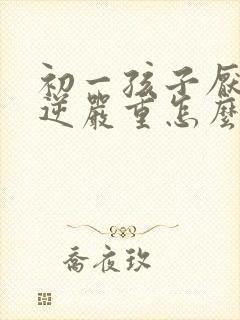 初一孩子厭
逆嚴重怎麼
喬夜玖